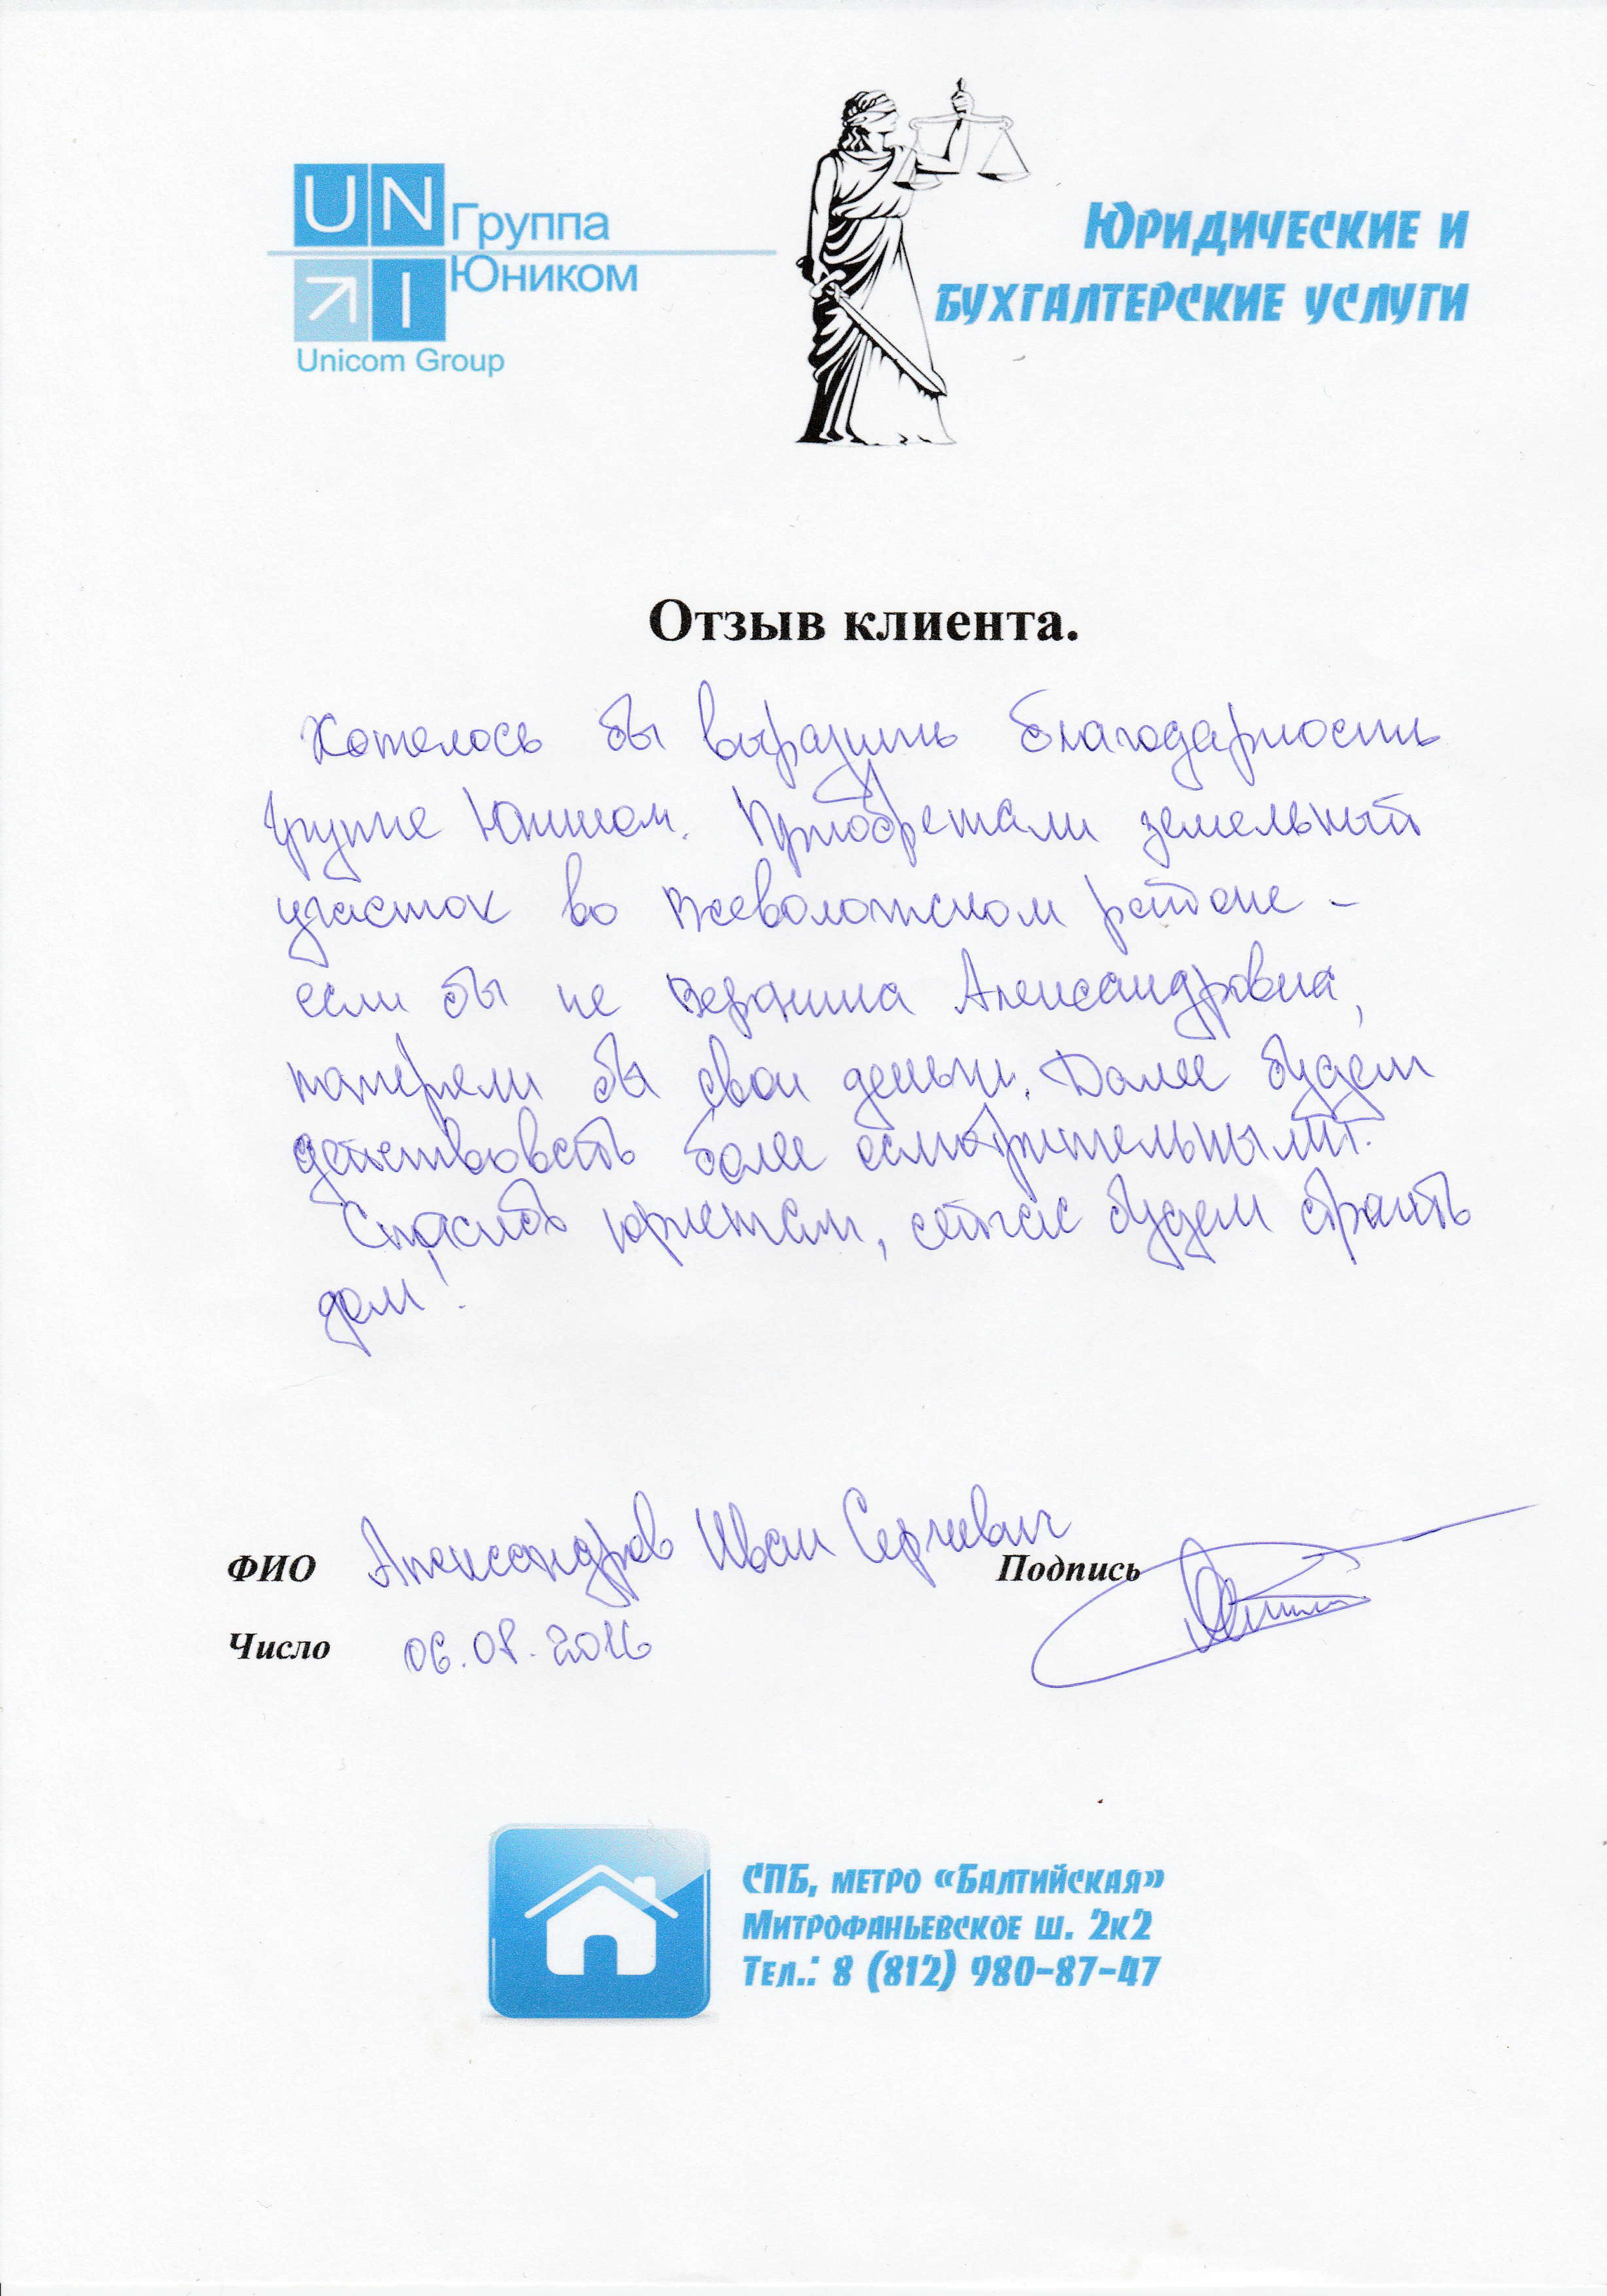 UN
Группа
Юником
I
Unicom Group
Юридические и
бухгалтерские услуги
Отзыв клиента.
Хотелось бы выразить благодарность
Группе Юником. Приобретали земельный
участок во Всеволожском районе -
если бы не Александровна,
потеряли бы свои деньги. Далее будем
действовать более осмотрительными.
Спасибо юристам, сейчас будем строить
дом!
ФИО Александров Иван Сергеевич Подпись
Число 06.08.2016
СПБ, метро «Балтийская»
Митрофаньевское ш. 2к2
Тел.: 8 (812) 980-87-47